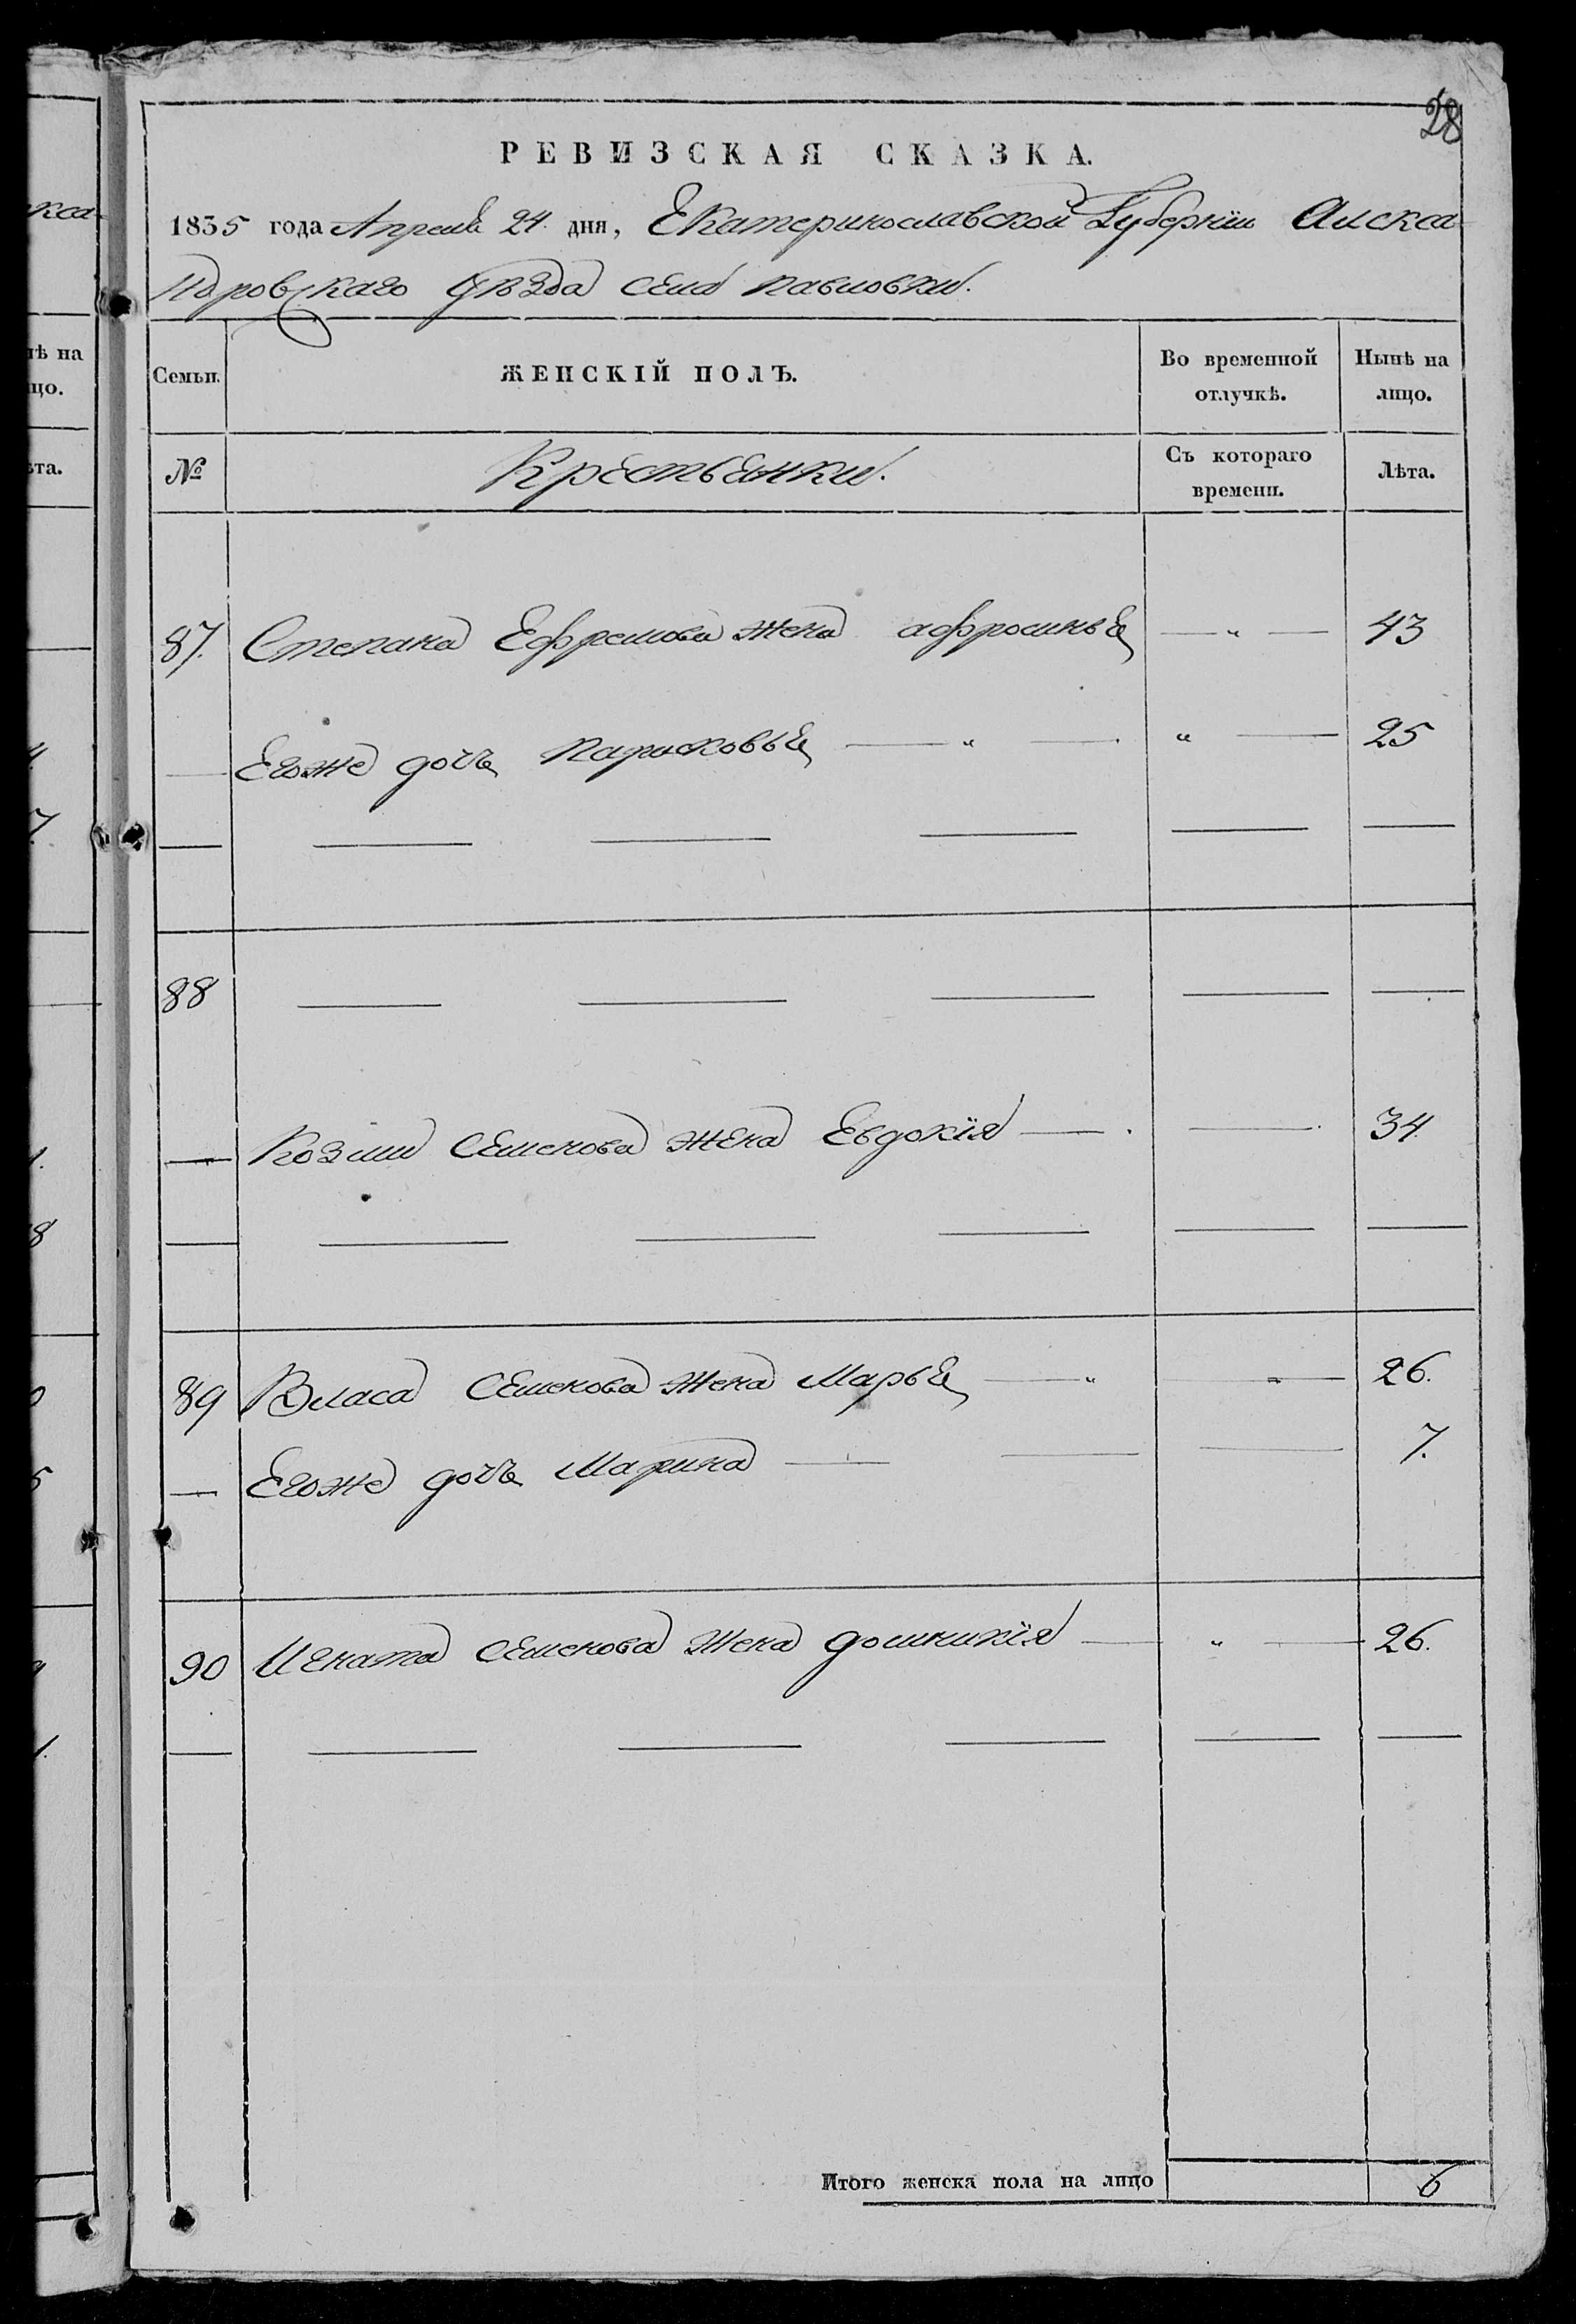 28
РЕВИЗСКАЯ СКАЗКА.
1835 года Апреля 24 дня, Екатеринославской Губернiи Алекса
ндровскаго уѣзда села павловки.
Семьи. ЖЕНСКІЙ ПОЛЪ. Во временной отлучкѣ. Нынѣ на лицо.
№ Крестьянки. Съ котораго времени. Лѣта.
87. Степана Ефремова жена афросинья — „ — 43
— Егоже дочь парасковья — „ — „ — 25
88
— Козмы Семенова жена Евдокiя — — 34
89 Власа Семенова жена Марья — „ „ — 26.
— Егоже дочь Марина — — — 7.
90 Игната Семенова жена домникiя — „ — 26.
Итого женска пола на лицо 6
кса
нѣ на
цо.
ѣта.